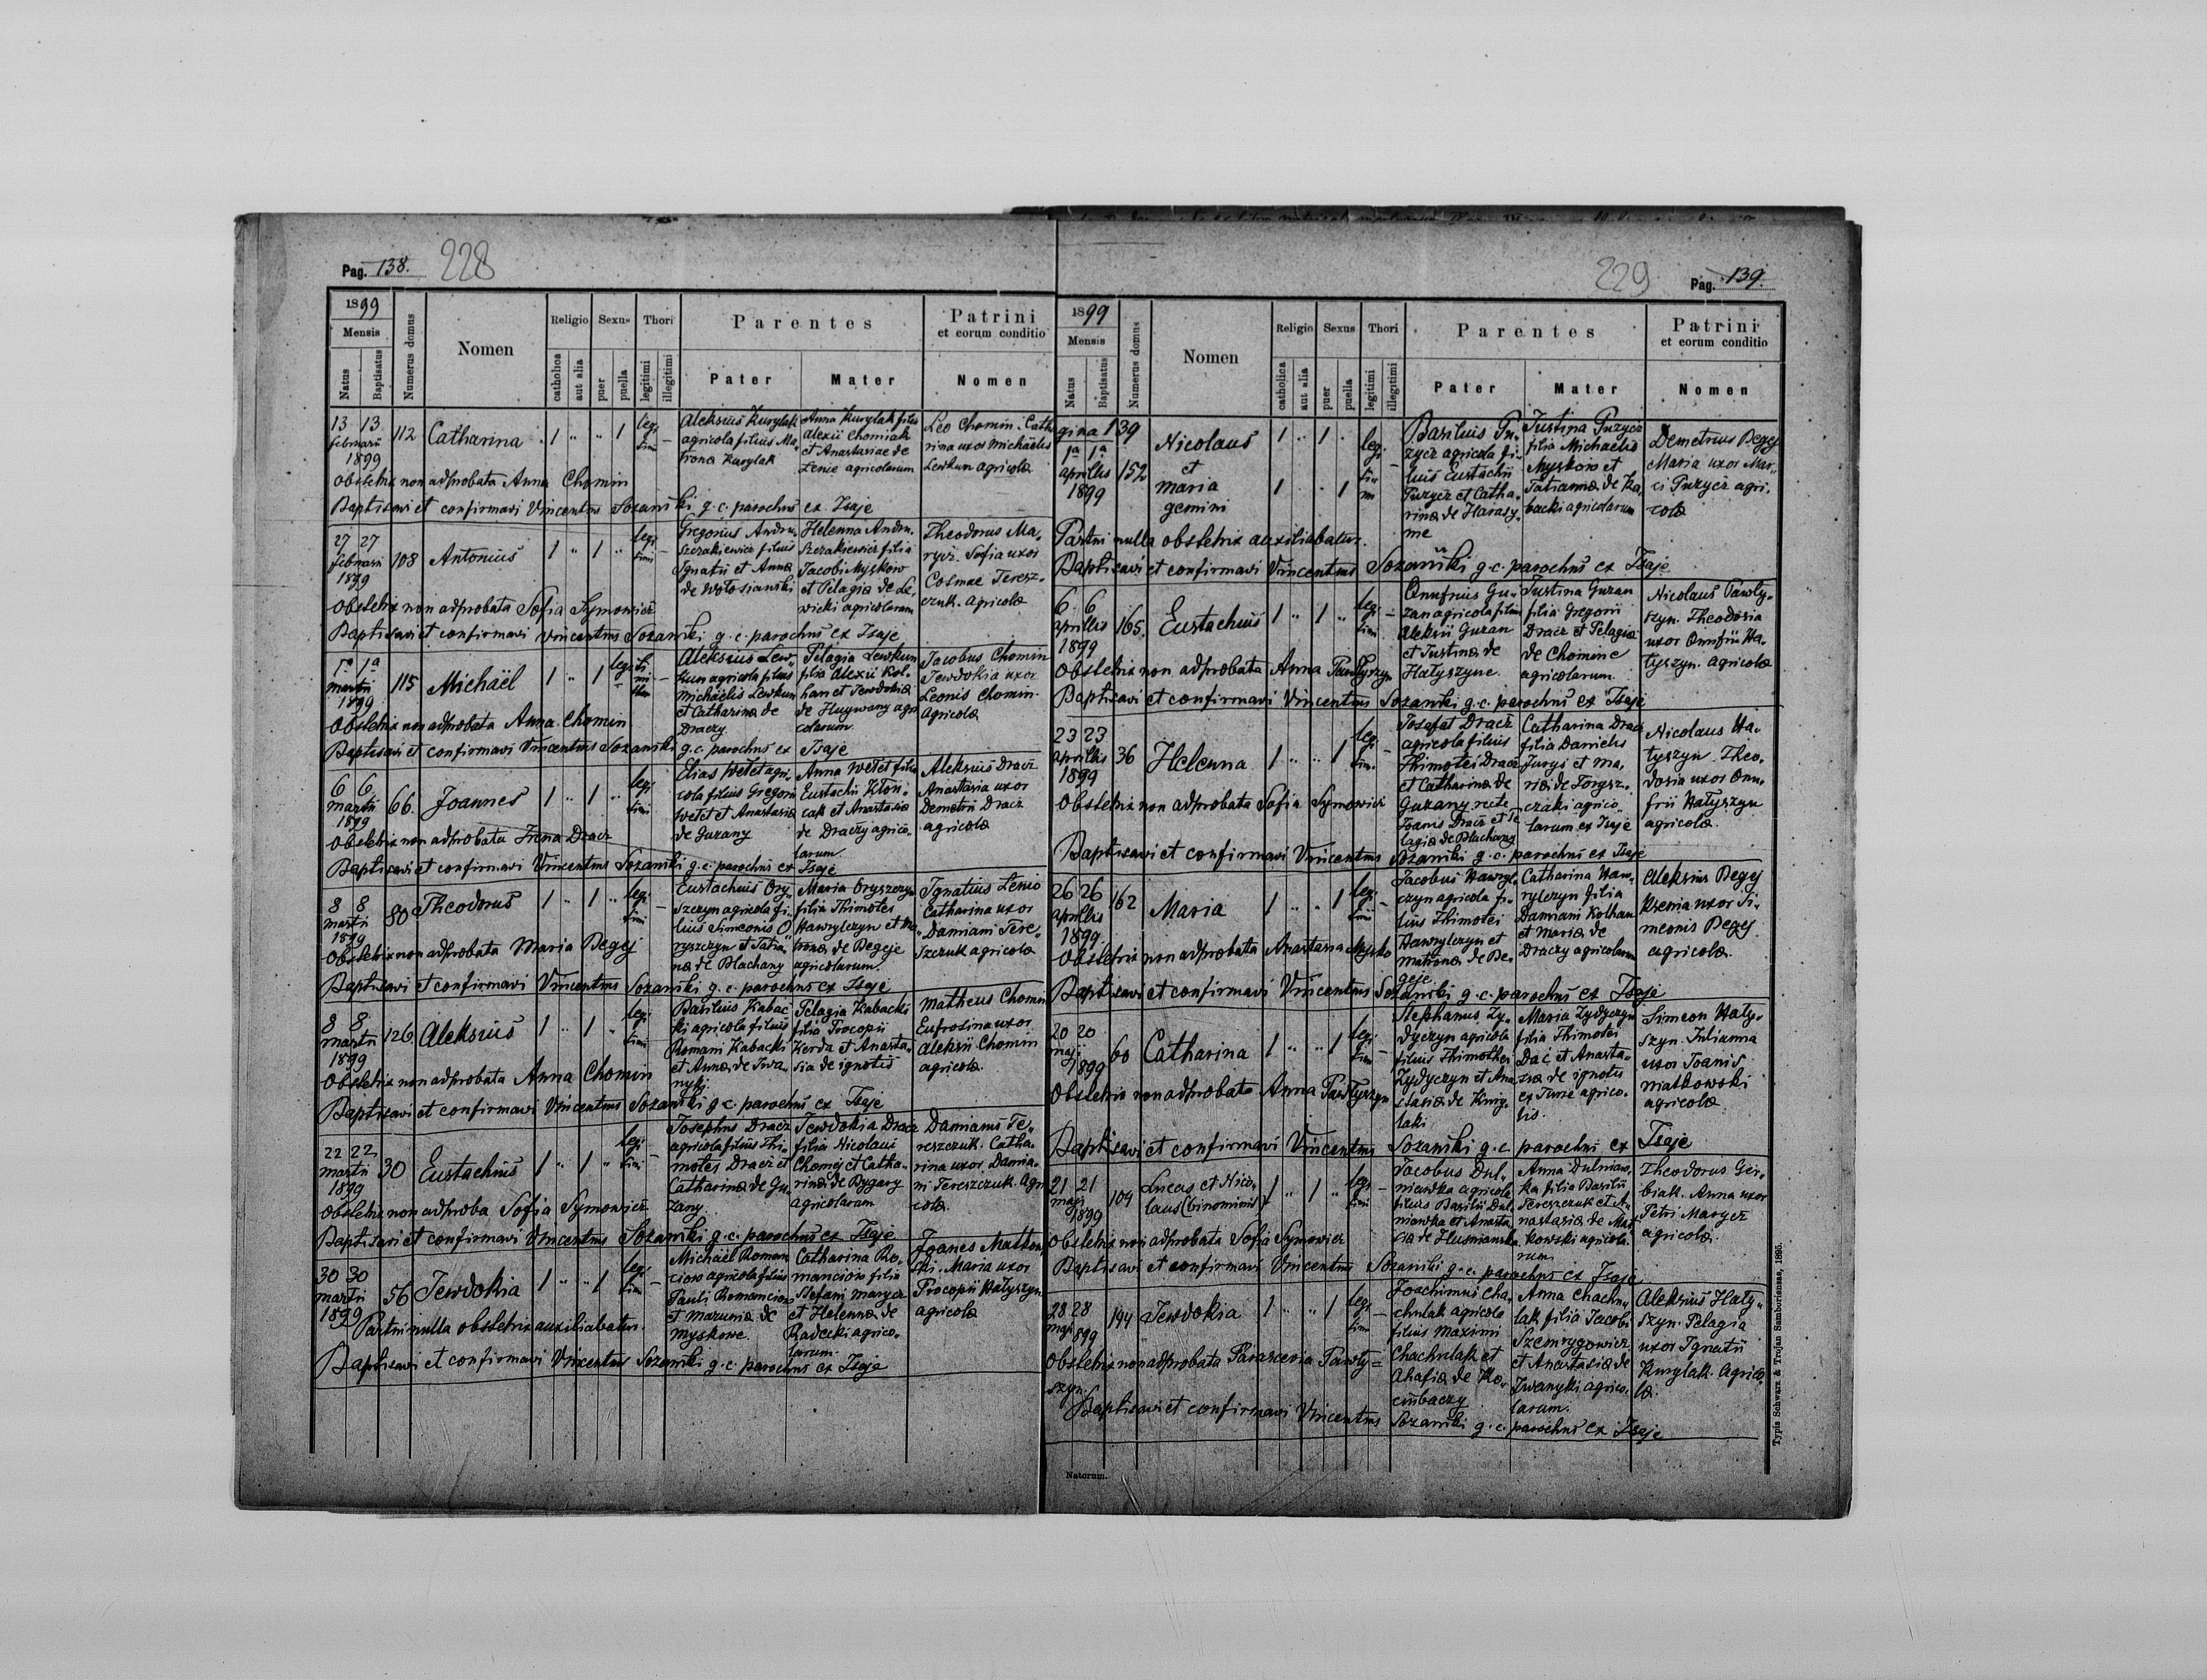 Pag. 138. 228
1899
Mensis
Natus
Baptisatus
Numerus domus
Nomen
Religio
catholica
aut alia
Sexus
puer
puella
Thori
legitimi
illegitimi
Parentes
Pater
Mater
Patrini
et eorum conditio
Nomen
13 13 februarii 1899 112 Catharina 1 " " 1 legitimi –
Aleksius Kurylak
agricola filius Ma-
trona Kurylak
Anna Kurylak filia
Alexii Chomiak
et Anastasiae de
Lenie agricolarum
Leo Chomin. Catha
rina uxor Michaelis
Lewkun agricolæ
Obstetrix non adprobata Anna Chomin
Baptisavi et confirmavi Vincentius Sozański g. c. parochus ex Isaje
27 27 februarii 1899 108 Antonius 1 " 1 " legitimi –
Gregorius Andru-
szczakiewicz filius
Ignatii et Anna
de Wołosianski
Helenna Andru-
szczakiewicz filia
Jacobi Myskow
et Pelagia de Le-
wicki agricolarum
Theodorus Ma-
rycz. Sofia uxor
Cosmae Teresz-
czuk. Agricolæ
Obstetrix non adprobata Sofia Symowicz
Baptisavi et confirmavi Vincentius Sozański g. c. parochus ex Isaje
1ª 1ª martii 1899 115 Michaël 1 " 1
Aleksius Lew-
kun agricola filius
Michaelis Lewkun
et Catharina de
Draczy
Pelagia Lewkun
filia Alexii Kol-
han et Jewdokia
de Huywany agri
colarum
Jacobus Chomin
Jewdokia uxor
Leonis Chomin.
Agricolæ
Obstetrix non adprobata Anna Chomin
Baptisavi et confirmavi Vincentius Sozański g. c. parochus ex Isaje
6 6 martii 1899 66. Joannes 1 " 1 " legitimi
Elias Wetet agri-
cola filius Gregorii
Wetet et Anastasia
de Guzany
Anna Wetet filia
Eustachii Kłon-
cak et Anastasia
de Draczy agrico-
larum
Aleksius Dracz
Anastasia uxor
Demetrii Dracz
agricolæ
Obstetrix non adprobata Irena Dracz
Baptisavi et confirmavi Vincentius Sozański g. c. parochus ex Isaje
8 8 martii 1899 80 Theodorus 1 " 1 " legitimi –
Eustachius Ory-
szczyn agricola fi-
lius Simeonis O-
ryszczyn et Tatia-
na de Blachany
Maria Oryszczyn
filia Thimotei
Hawrylczyn et Ma
trona de Begeje
agricolarum.
Ignatius Lenio
Catharina uxor
Damiani Tere-
szczuk agricolæ
Obstetrix non adprobata Maria Begej
Baptisavi et confirmavi Vincentius Sozański g. c. parochus ex Isaje
8 8 martii 1899 126 Aleksius 1 " 1 " legitimi –
Basilius Kabac
ki agricola filius
Romani Kabacki
et Anna de Iwa-
nyki
Pelagia Kabacki
filia Procopii
Kerda et Anasta-
sia de ignotis
Matheus Chomin
Eufrosina uxor
Aleksii Chomin
agricolæ.
Obstetrix non adprobata Anna Chomin
Baptisavi et confirmavi Vincentius Sozański g. c. parochus ex Isaje
22 22 martii 1899 30 Eustachius 1 " 1 " legitimi –
Josephus Dracz
agricola filius Thi-
motei Dracz et
Catharina de Gu-
zany.
Jewdokia Dracz
filia Nicolaui
Chomej et Catha-
rina de Bygary
agricolarum
Damianus Te-
reszczuk. Catha-
rina uxor Damia-
ni Tereszczuk. Agri
colæ.
Obstetrix non adproba Sofia Symowicz
Baptisavi et confirmavi Vincentius Sozański g. c. parochus ex Isaje
30 30 martii 1899 56 Jewdokia 1 " " 1 legitimi –
Michaël Roman
ciow agricola filius
Pauli Romanciow
et Marunia de
Myskowe.
Catharina Ro-
manciow filia
Stefani Marycz
et Helenna de
Radecki agrico-
larum.
Joanes Matkow
ski. Maria uxor
Procopii Hatyszyn
agricolæ
Partui nulla obstetrix auxiliabatur.
Baptisavi et confirmavi Vincentius Sozański g. c. parochus ex Isaje
229 Pag. 139.
1899
Mensis
Natus
Baptisatus
Numerus domus
Nomen
Religio
catholica
aut alia
Sexus
puer
puella
Thori
legitimi
illegitimi
Parentes
Pater
Mater
Patrini
et eorum conditio
Nomen
gina 139
1ª 1ª aprilis 1899 152 Nicolaus 1 " 1 " legitimi –
et
Maria 1 " " 1
gemini
Basilius Pu-
zycz agricola fi-
lius Eustachii
Puzycz et Catha-
rina de Harasy-
me
Justina Puzycz
filia Michaelis
Myskow et
Tatianna de Ka-
backi agricolarum
Demetrius Begej
Maria uxor Mar-
ci Puzycz agri-
colæ
Partui nulla obstetrix auxiliabatur.
Baptisavi et confirmavi Vincentius Sozański g. c. parochus ex Isaje
6 6 aprilis 1899 165. Eustachius 1 " 1 " legitimi –
Onufrius Gu-
zan agricola filius
Aleksii Guzan
et Justina de
Hatyszyne.
Justina Guzan
filia Gregorii
Dracz et Pelagia
de Chomine
agricolarum.
Nicolaus Pawły-
szyn. Theodosia
uxor Onufrii Ha-
tyszyn. Agricolæ
Obstetrix non adprobata Anna Pawłyszyn
Baptisavi et confirmavi Vincentius Sozański g. c. parochus ex Isaje
23 23 aprilis 1899 36 Helenna 1 " " 1 legitimi –
Josafat Dracz
agricola filius
Thimotei Dracz
et Catharina de
Guzany nete
Joanis Dracz et Pe
lagia de Blachany
Catharina Dracz
filia Danielis
Jurys et Ma-
ria de Torysz-
czaki agrico-
larum ex Isaje
Nicolaus Ha-
tyszyn. Theo-
dosia uxor Onu-
frii Hatyszyn
agricolæ.
Obstetrix non adprobata Sofia Symowicz
Baptisavi et confirmavi Vincentius Sozański g. c. parochus ex Isaje
26 26 aprilis 1899. 162 Maria 1 " " 1 legitimi –
Jacobus Hawryl-
czyn agricola fi-
lius Thimotei
Hawrylczyn et
Matrona de Be-
geje
Catharina Haw-
rylczyn filia
Damiani Kolhan
et Maria de
Draczy agricolarum
Aleksius Begej
Ksenia uxor Si-
meonis Begej
agricolæ.
Obstetrix non adprobata Anastasia Mysko
Baptisavi et confirmavi Vincentius Sozański g. c. parochus ex Isaje
20 20 maji 1899 60 Catharina 1 " " 1 legitimi –
Stephanus Zy-
dyczyn agricola
filius Thimothei
Zydyczyn et Ana
stasia de Knig-
laki
Maria Zydyczyn
filia Thimotei
Dac et Anasta-
zia de ignotis
ex Turie agrico-
lis.
Simeon Haty-
szyn. Julianna
uxor Joanis
Matkowski
agricolæ
Obstetrix non adprobata Anna Pawłyszyn
Baptisavi et confirmavi Vincentius Sozański g. c. parochus ex Isaje
21 21 maji 1899 104 Lucas et Nico-
laus (binominis) 1 " 1 " legitimi –
Jacobus Dul-
niawka agricola
filius Basilii Dul-
niawka et Anasta-
sia de Husnianska
Anna Dulniaw-
ka filia Basilii
Tereszczuk et A-
nastasia de Mat-
kowski agricola-
rum.
Theodorus Ger-
biak. Anna uxor
Petri Marycz
agricolæ.
Obstetrix non adprobata Sofia Symowicz
Baptisavi et confirmavi Vincentius Sozański g. c. parochus ex Isaje
28 28 maji 1899 194 Jewdokia 1 " " 1 legitimi –
Joachimus Cha-
chulak agricola
filius Maximi
Chachulak et
Ahafia de Ko-
ciubaczy
Anna Chachu-
lak filia Jacobi
Szemrygowicz
et Anastasia de
Iwanyki agrico-
larum.
Aleksius Haty-
szyn. Pelagia
uxor Ignatii
Kurylak. Agrico-
læ.
Obstetrix non adprobata Parasceria Pawły=
szyn.
Baptisavi et confirmavi Vincentius Sozański g. c. parochus ex Isaje
Natorum.
Typis Schwarz & Trojan Samboriensae, 1895.